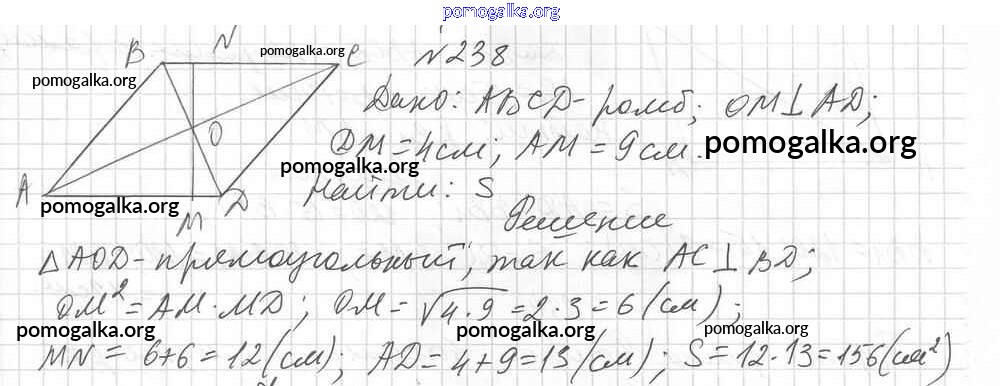 pomogalka.org
B N C
pomogalka.org
pomogalka.org
O
A M D
pomogalka.org
pomogalka.org
№238
Дано: ABCD - ромб; OM ⊥ AD;
DM = 4 см; AM = 9 см.
pomogalka.org
Найти: S
Решение
△AOD - прямоугольный, так как AC ⊥ BD;
OM² = AM · MD; OM = √4·9 = 2·3 = 6 (см);
pomogalka.org
pomogalka.org
pomogalka.org
MN = 6+6 = 12 (см); AD = 4+9 = 13 (см); S = 12·13 = 156 (см²)